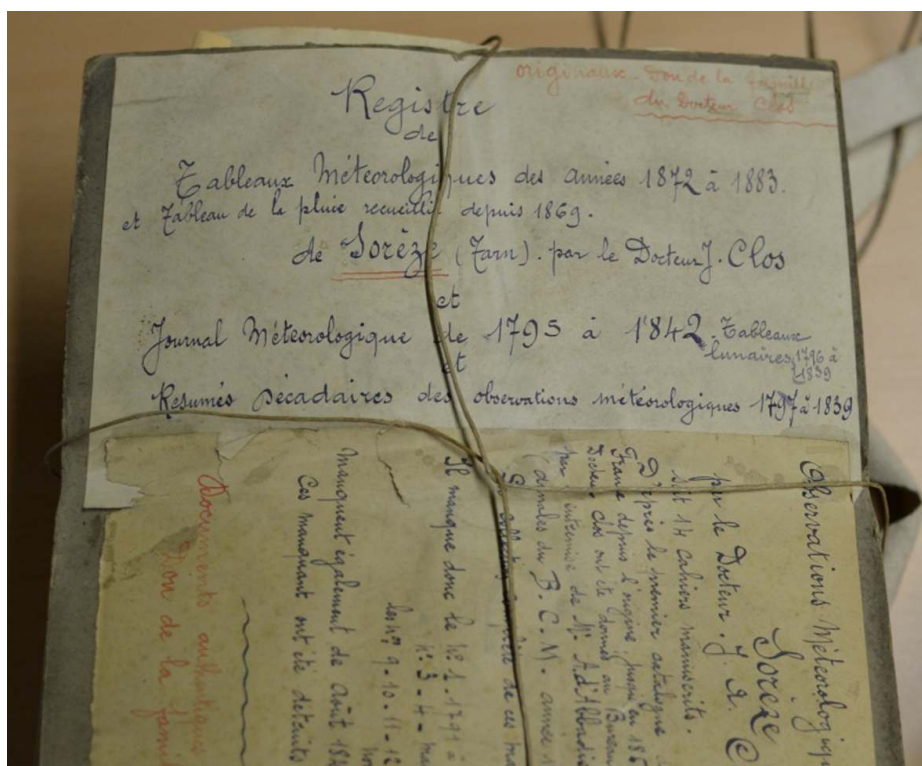 originaux - Don de la famille
du Docteur Clos
Registre
de
Tableaux Méteorologiques des années 1872 à 1883.
et Tableau de la pluie recueillie depuis 1869.
de Sorèze (Tarn). par le Docteur J. Clos
et
Journal Méteorologique de 1795 à 1842. Tableaux
lunaires 1796 à
1839
et
Résumés Décadaires des observations météorologiques 1797 à 1839
Observations Météorologiq
Sorèze
par le Docteur. J. A. C
soit 14 Cahiers manuscrits.
D'après le premier catalogue
France depuis l'origine jusqu'en 18
Docteur Clos ont été donnés au Bureau
par intremise de Mr A. d'Abbadie
(annales du B. C. M. année
de ces
Il manque donc le N° 1 - 1791 à
N° 3 - 4 -
les nos 9 - 10 - 11 - 12
Manquent également de août 18
Ces manquant ont été détruits
Documents authentiques
Don de la famil